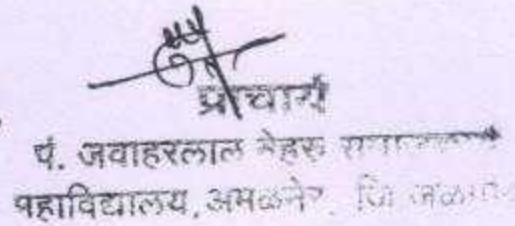 प्राचार्य
पं. जवाहरलाल नेहरु
महाविद्यालय, अमळनेर, जि.